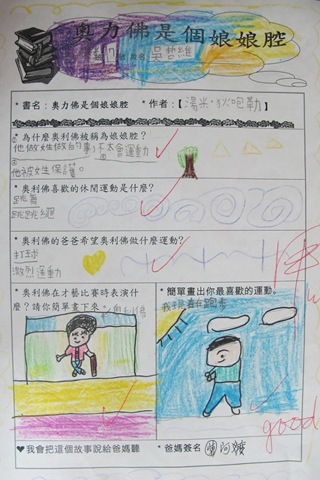 奧力佛是個娘娘腔
* 書名：奧力佛是個娘娘腔 * 作者：【湯米·狄咆勒】
* 為什麼奧利佛被稱為娘娘腔？
他做女性做的事，不太會運動
他被女性保護。
* 奧利佛喜歡的休閒運動是什麼？
跳舞
跳跳繩
* 奧利佛的爸爸希望奧利佛做什麼運動？
打球
激烈運動
* 奧利佛在才藝比賽時表演什麼？請你簡單畫下來。
* 簡單畫出你最喜歡的運動。
我最喜歡跑步
good
❤我會把這個故事說給爸媽聽
* 爸媽簽名